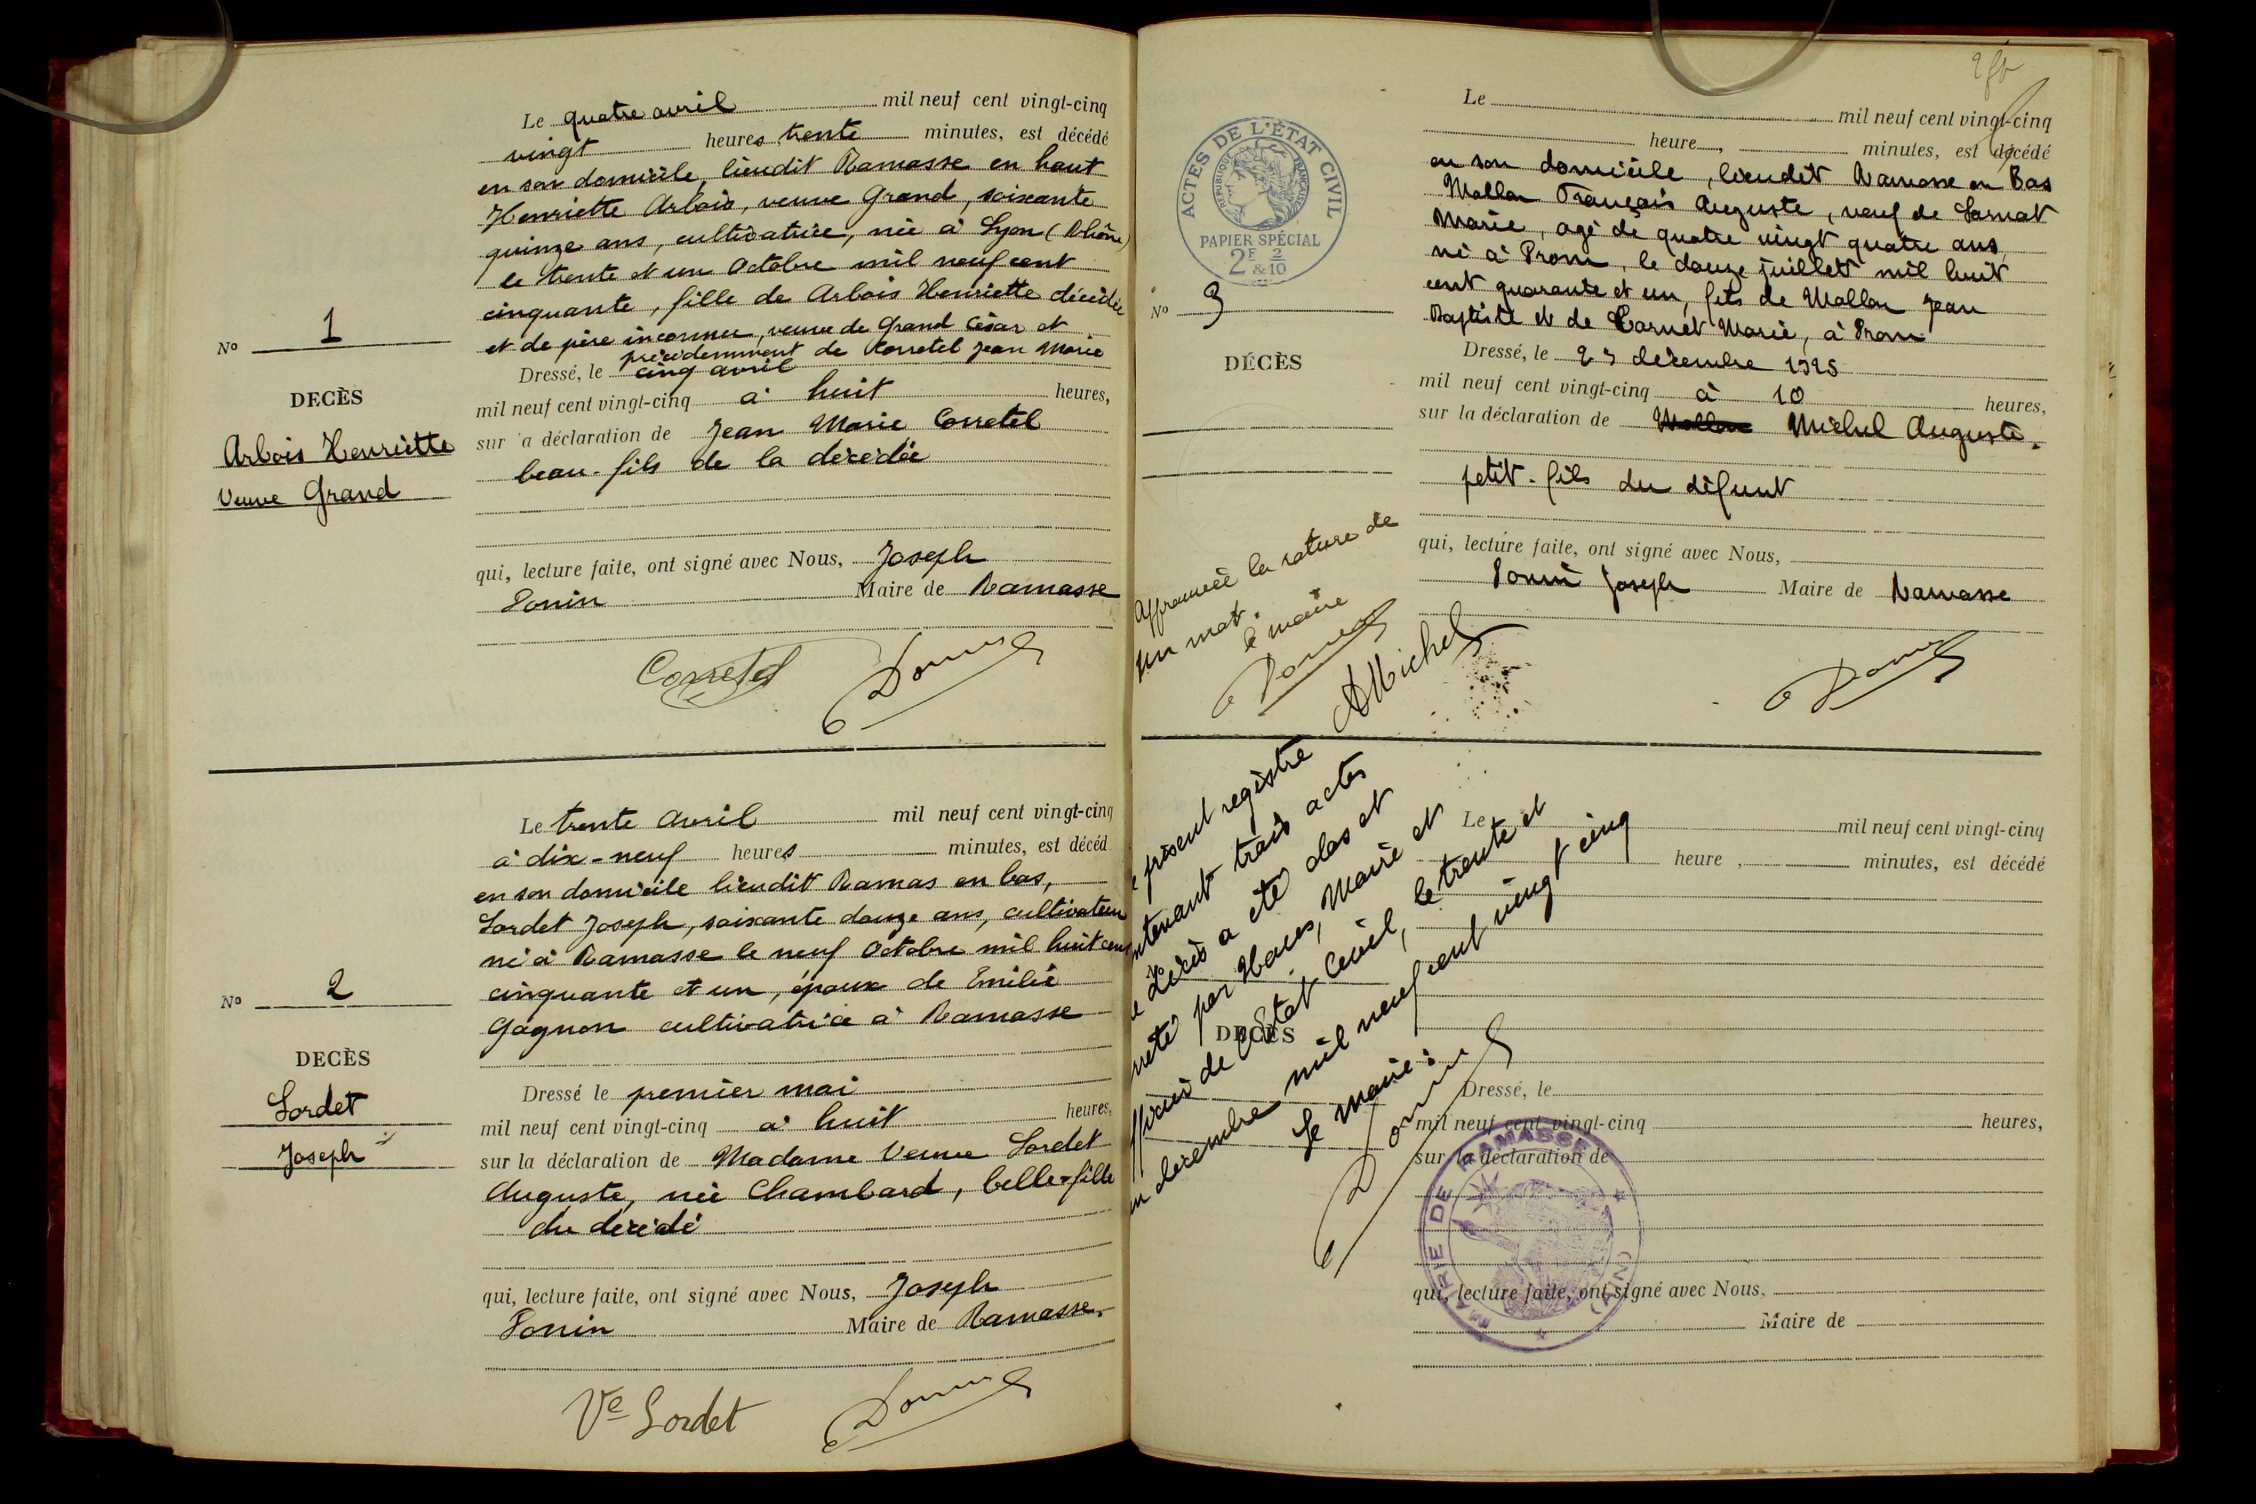 Le quatre avril mil neuf cent vingt-cinq
vingt heures trente minutes, est décédé
en son domicile, lieudit Ramasse en haut
Henriette Arbois, veuve Grand, soixante
quinze ans, cultivatrice, née à Lyon (Rhône)
le trente et un Octobre mil neuf cent
cinquante, fille de Arbois Henriette décédée
et de père inconnu, veuve de Grand César et
précédemment de Corretel Jean Marie
Nº 1
DECÈS
Arbois Henriette
Veuve Grand
Dressé, le cinq avril
mil neuf cent vingt-cinq à huit heures,
sur a déclaration de Jean Marie Corretel
beau-fils de la décédée
qui, lecture faite, ont signé avec Nous, Joseph
Ponin Maire de Ramasse
Corretel Ponin
Le trente Avril mil neuf cent vingt-cinq
à dix-neuf heures minutes, est décéd
en son domicile lieudit Ramas en bas,
Sordet Joseph, soixante douze ans, cultivateur
né à Ramasse le neuf Octobre mil huit cent
cinquante et un, époux de Emilie
Gagnon cultivatrice à Ramasse
Nº 2
DECÈS
Sordet
Joseph
Dressé le premier mai
mil neuf cent vingt-cinq à huit heures,
sur la déclaration de Madame Veuve Sordet
Auguste, née Chambard, belle-fille
du décédé
qui, lecture faite, ont signé avec Nous, Joseph
Ponin Maire de Ramasse.
Ve Sordet Ponin
ACTES DE L'ÉTAT CIVIL
RÉPUBLIQUE FRANÇAISE
PAPIER SPÉCIAL
2F 2
&10
Le mil neuf cent vingt-cinq
heure , minutes, est décédé
en son domicile, lieudit Ramasse en Bas
Mallan François Auguste, veuf de
Marie, agé de quatre vingt quatre ans
né à Drom, le douze juillet mil huit
cent quarante et un, fils de Mallan Jean
Baptiste et de Carnet Marie, à Drom
Nº 3
DÉCÈS
Dressé, le 23 décembre 1925
mil neuf cent vingt-cinq à 10 heures,
sur la déclaration de Mallan Michel Auguste.
petit-fils du défunt
qui, lecture faite, ont signé avec Nous,
Ponin Joseph Maire de Ramasse
Approuvée la rature de
un mot.
le maire
Ponin
AMichel
Ponin
présent registre
ntenant trois actes
e décès a été clos et
rrêté par Nous, Maire et
fficier de l'Etat Civil, le trente et
un décembre mil neuf cent vingt cinq
Le maire:
Ponin
Le mil neuf cent vingt-cinq
heure , minutes, est décédé
DECÈS
Dressé, le
mil neuf cent vingt-cinq heures,
sur la déclaration de
qui, lecture faite, ont signé avec Nous,
Maire de
MAIRIE DE RAMASSE
(AIN)